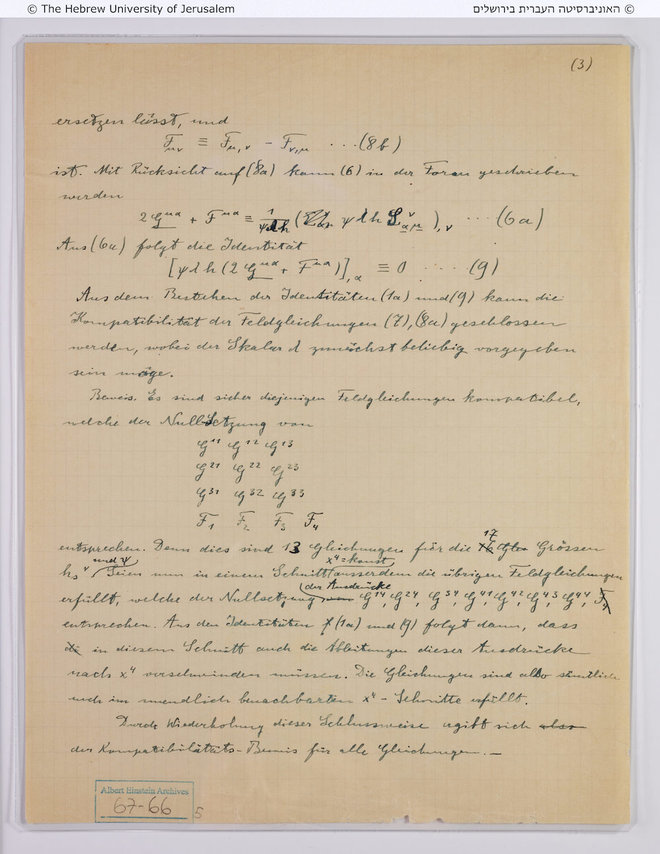 © The Hebrew University of Jerusalem
© האוניברסיטה העברית בירושלים
(3)
ersetzen lässt, und
F_{μν} ≡ F_{μ,ν} - F_{ν,μ} ...(8b)
ist. Mit Rücksicht auf (8a) kann (6) in der Form geschrieben
werden
2 G^{μα} + F^{μα} ≡ 1/(ψλh) (ψλh S^ν_{αμ})_{,ν} ... (6a)
Aus (6a) folgt die Identität
[ψλh (2 G^{μα} + F^{μα})]_{,α} ≡ 0 ... (9)
Aus dem Bestehen der Identitäten (1a) und (9) kann die
Kompatibilität der Feldgleichungen (7), (8a) geschlossen
werden, wobei der Skalar λ zunächst beliebig vorgegeben
sein möge.
Beweis. Es sind sicher diejenigen Feldgleichungen kompatibel,
welche der Nullsetzung von
G^{11} G^{12} G^{13}
G^{21} G^{22} G^{23}
G^{31} G^{32} G^{33}
F_1 F_2 F_3 F_4
entsprechen. Denn dies sind 13 Gleichungen für die 17 Grössen
h_s^ν und ψ. Seien nun in einem Schnitt x^4 = konst ausserdem die übrigen Feldgleichungen
erfüllt, welche der Nullsetzung der Ausdrücke G^{14}, G^{24}, G^{34}, G^{41}, G^{42}, G^{43}, G^{44}
entsprechen. Aus den Identitäten (1a) und (9) folgt dann, dass
in diesem Schnitt auch die Ableitungen dieser Ausdrücke
nach x^4 verschwinden müssen. Die Gleichungen sind also sämtlich
auch im unendlich benachbarten x^4 - Schnitte erfüllt.
Durch Wiederholung dieser Schlussweise ergibt sich also
der Kompatibilitäts-Beweis für alle Gleichungen. —
Albert Einstein Archives
67-66
5